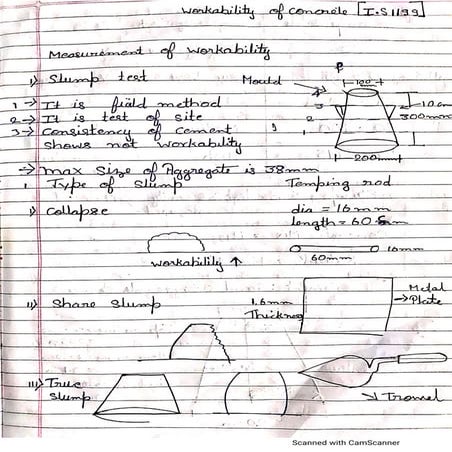 workability of concrete [I.S 1199]
Measurement of workability
i) Slump test
Mould
100mm
1 → It is field method
2 → It is test of site
3 → Consistency of cement
shows not workability
3
2
1
10cm
300mm
200mm
→ max Size of Aggregate is 38mm
Type of Slump
Temping rod
i) Collapse
dia = 16mm
length = 60
16mm
60mm
workability ↑
ii) Share Slump
1.6mm
Thickness
Metal
→ Plate
iii) True
Slump
Scanned with CamScanner